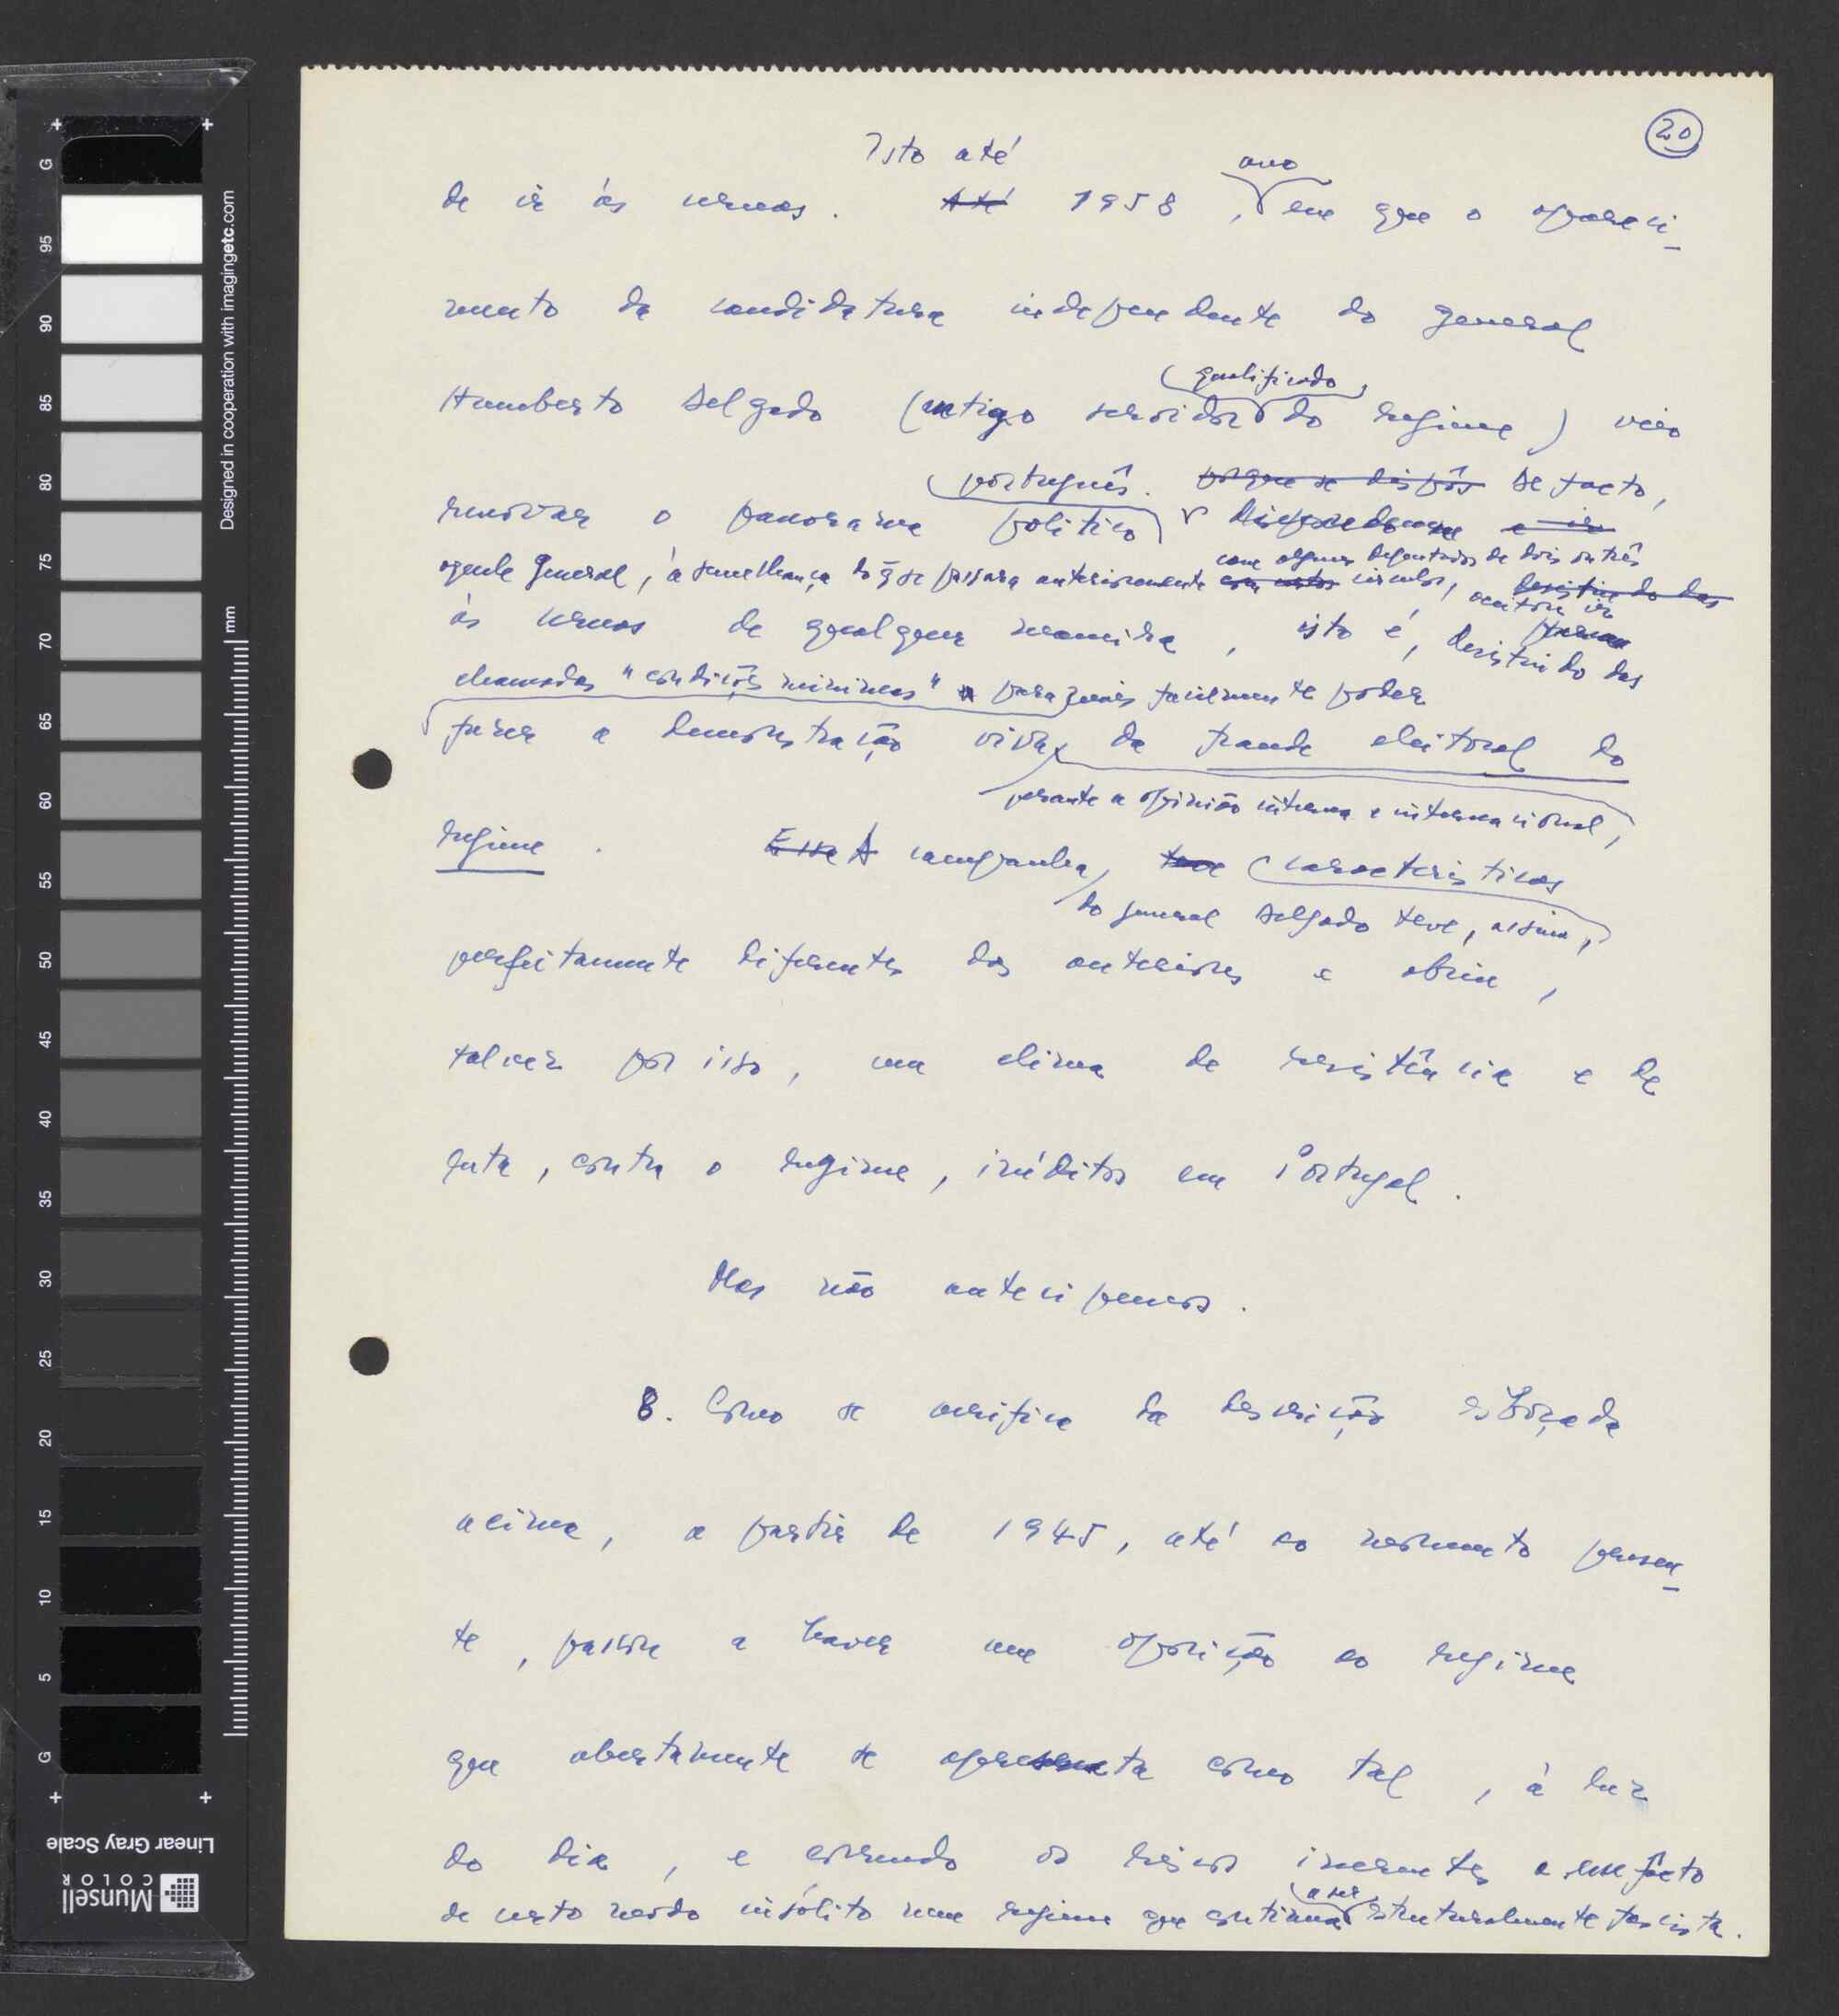 20
Isto até
ano
de ir às urnas. Até 1958, em que o apareci-
mento da candidatura independente do general
qualificado
Humberto Delgado (antigo servidor do regime) veio
português. porque se dispôs De facto,
renovar o panorama político e ir
aquele general, à semelhança do q̃ se passara anteriormente com certos círculos,
com alguns deputados de dois ou três
desistindo das
aceitou ir
às urnas de qualquer maneira, isto é, desistindo das
chamadas "condições mínimas" para mais facilmente poder
fazer a demonstração viva da fraude eleitoral do
perante a opinião interna e internacional,
regime. Essa A campanha, teve características
do general Delgado teve, assim,
perfeitamente diferentes das anteriores e abriu,
talvez por isso, um clima de resistência e de
luta, contra o regime, inéditos em Portugal.
Mas não antecipemos.
8. Como se verifica da descrição esboçada
acima, a partir de 1945, até ao momento presen-
te, passou a haver uma oposição ao regime
que abertamente se apresenta como tal, à luz
do dia, e correndo os riscos inerentes a esse facto
a ser
de certo modo insólito num regime que continua estruturalmente fascista.
Designed in cooperation with imagingetc.com
mm
G 95 90 85 80 75 70 65 60 55 50 45 40 35 30 25 20 15 10 5 G
Linear Gray Scale
Munsell
COLOR